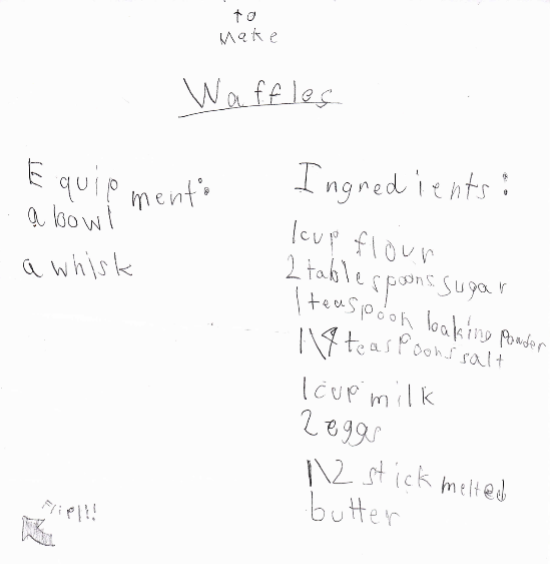 to
make
Waffles
Equipment:
a bowl
a whisk
Ingredients:
1cup flour
2tablespoons sugar
1teaspoon baking powder
1\4 teaspoons salt
1cup milk
2eggs
1\2 stick melted
butter
Flip!!!